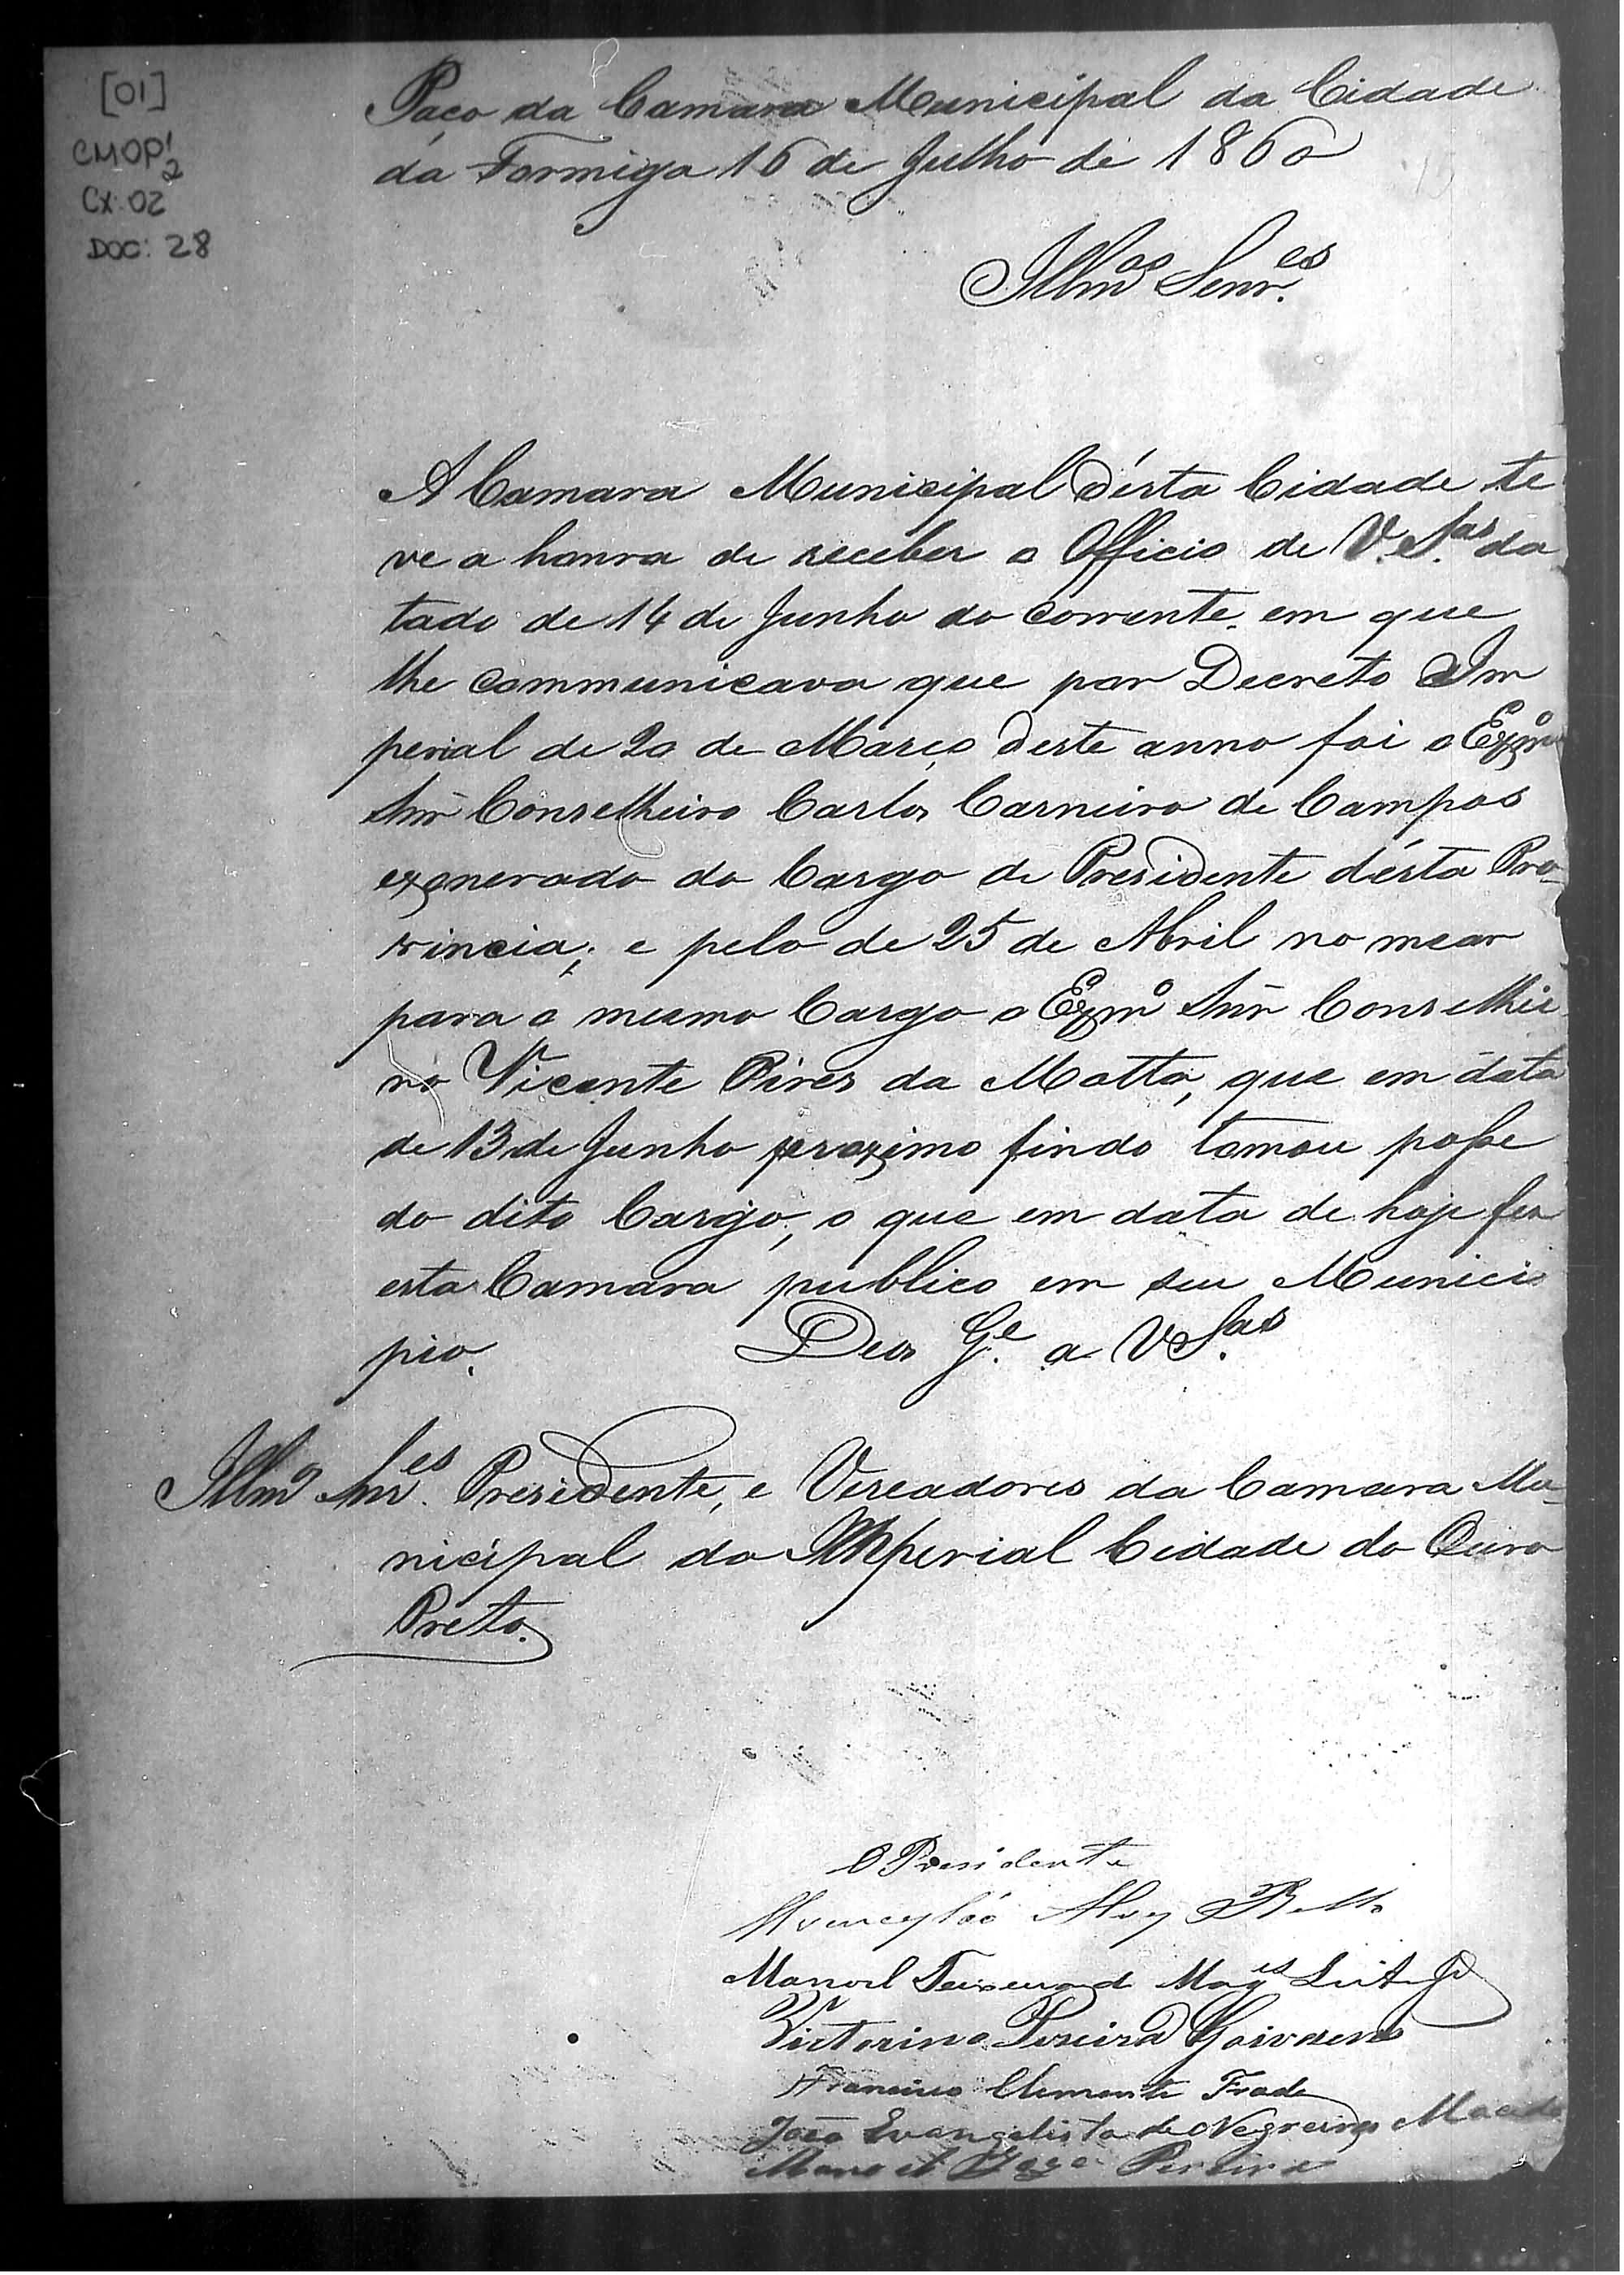 [01]
CMOP 1/2
CX: 02
DOC: 28
Paço da Camara Municipal da Cidade
da Formiga 16 de Julho de 1860
Illm.os Senr.es
A Camara Municipal d'ésta Cidade te
ve a honra de receber o Officio de V. S.as da
tado de 14 de Junho do corrente em que
lhe communicava que por Decreto Im
perial de 20 de Março deste anno foi o Exm.o
Snr Conselheiro Carlos Carneiro de Campos
exonerado do Cargo de Presidente d'ésta Pro-
vincia; e pelo de 25 de Abril nomear
para o mesmo Cargo o Exm.o Snr Conselhei
ro Vicente Pires da Motta, que em data
de 13 de Junho proximo findo tomou posse
do dito Cargo, o que em data de hoje fez
esta Camara publico em seu Munici
pio. Deos G.e a V S.as
Illm.os Snr.es Presidente, e Vereadores da Camara Mu-
nicipal da Imperial Cidade do Ouro
Preto.
O Presidente
Alvez Bello
Manoel Teixeira de Mag.es Leite
Victorino Pereira
Francisco Clemente Frade
João Evangelista de Negreiros Macedo
Manoel Joze Pereira